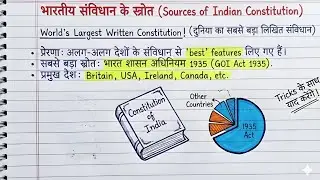 भारतीय संविधान के स्रोत (Sources of Indian Constitution)
World's Largest Written Constitution! (दुनिया का सबसे बड़ा लिखित संविधान)
• प्रेरणा: अलग-अलग देशों के संविधान से 'best' features लिए गए हैं।
सबसे बड़ा स्रोत: भारत शासन अधिनियम 1935 (GOI Act 1935).
• प्रमुख देश: Britain, USA, Ireland, Canada, etc.
Constitution of India
Other
Countries
1935
Act
Tricks के साथ
याद करेंगे!